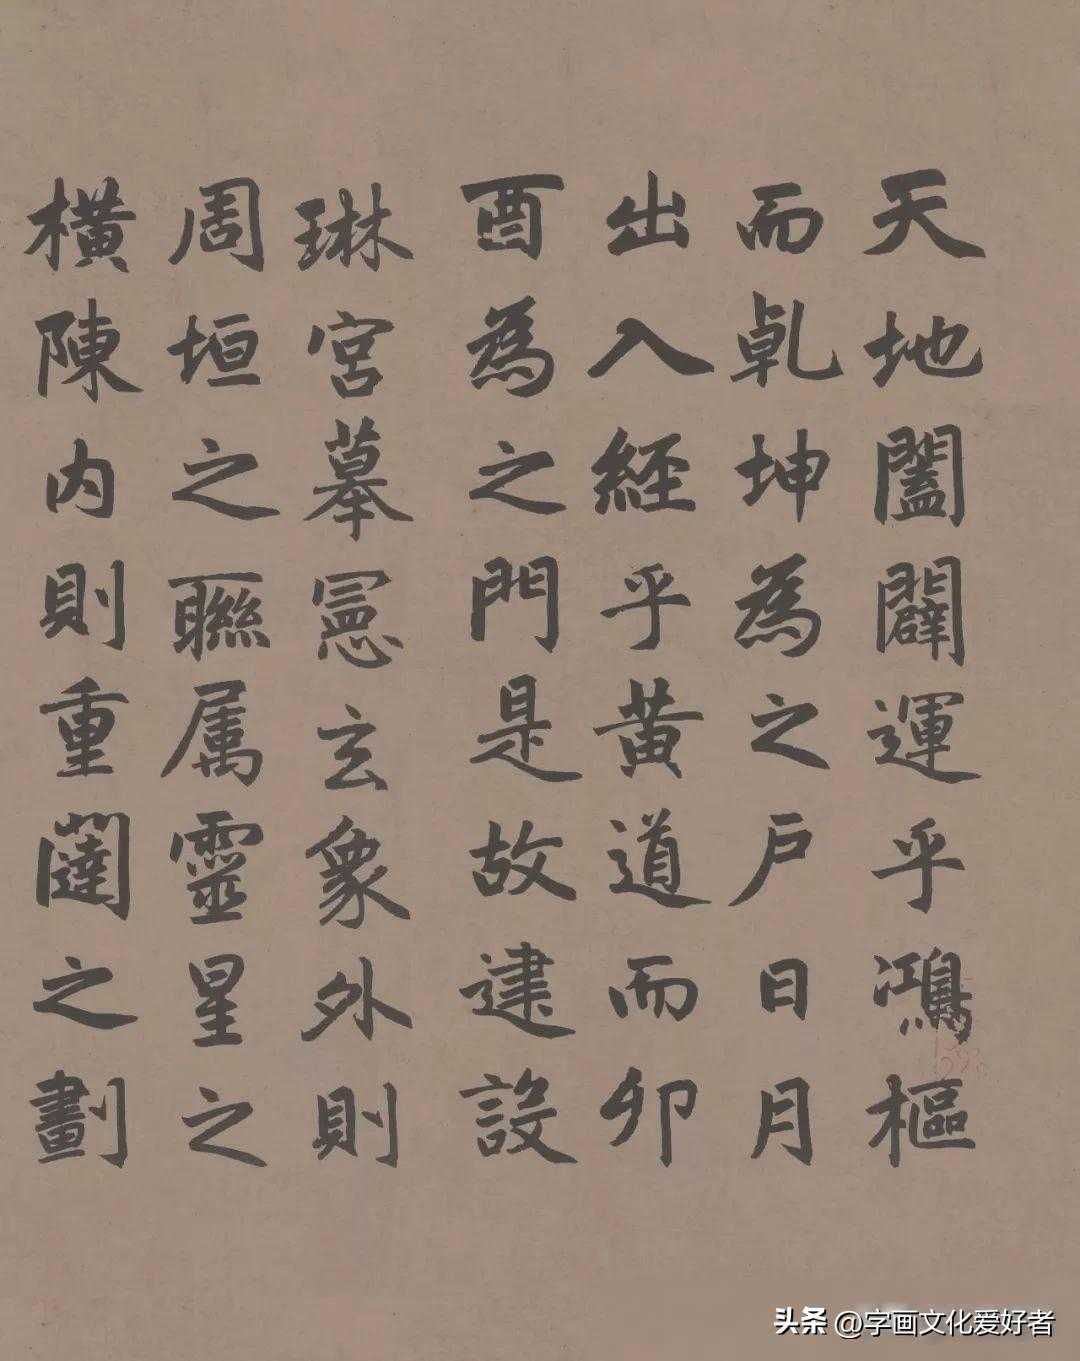 天地闔闢運乎鴻樞
而乹坤為之戶日月
出入經乎黃道而卯
酉為之門是故建設
琳宮摹憲玄象外則
周垣之聮属靈星之
橫陳內則重闥之劃
头条 @字画文化爱好者